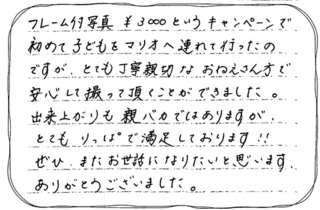 フレーム付写真 ¥3000という キャンペーンで
初めて子どもをマリオへ連れて行ったの
ですが、とても丁寧親切な おねえさん方で
安心して撮って頂くことができました。
出来上がりも 親バカではありますが、
とても りっぱで満足しております!!
ぜひ、またお世話になりたいと思います。
ありがとうございました。